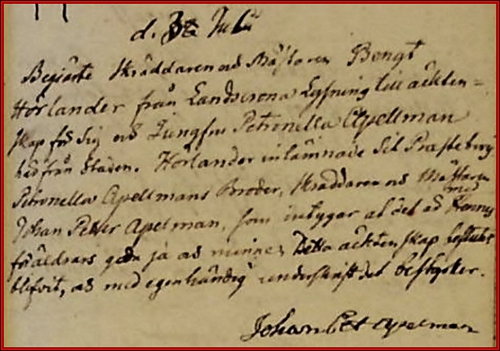 d. 3 Juli
Begiärte Skräddaren och Mästaren Bengt
Hörlander från Landscrona Lysning till äckten=
skap för sig och Jungfru Petronella Apellman
här från Staden. Hörlander inlämnade sit Prästebevis
Petronella Apellmans Broder, Skräddaren och Mästaren
Johan Petter Apelman, som intygar at det är med Hennes
föräldrars goda ja och minne, detta äcktenskap beslutit
blifvit, och med egenhändig underskrift det bestyrker.
Johan Pet Apelman